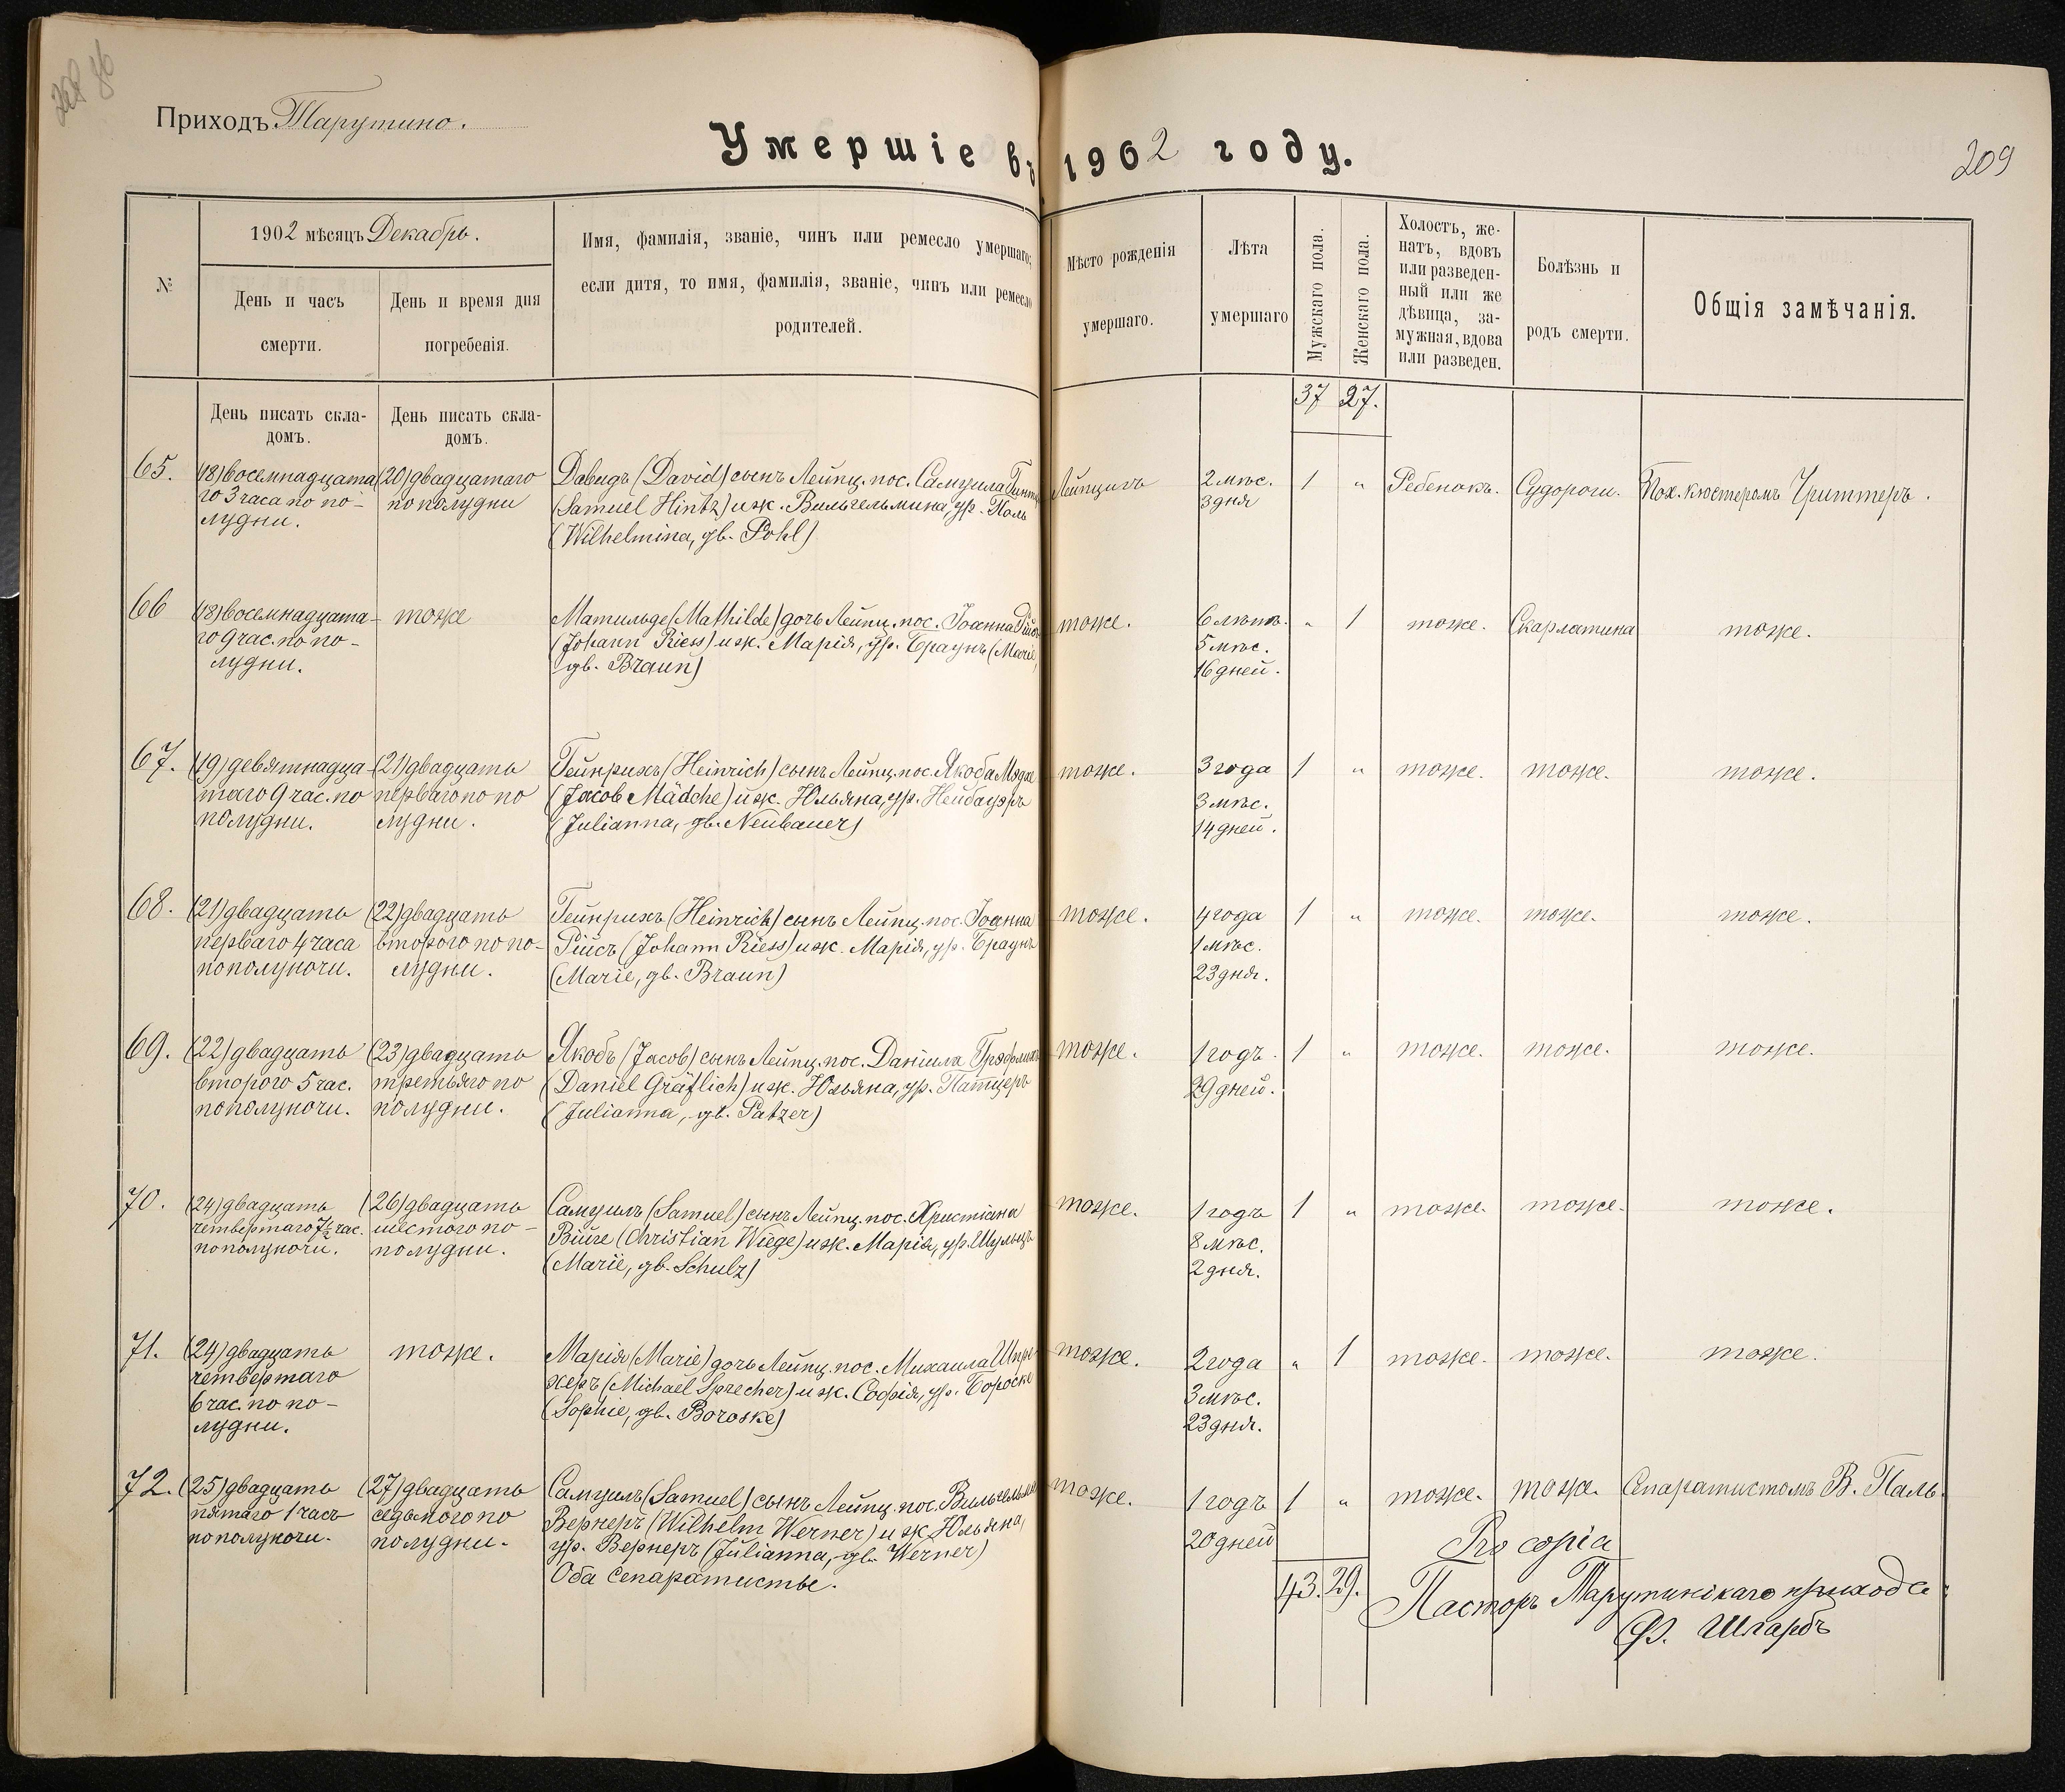 Приходъ Тарутино.
Умершіе въ 1902 году.
209
№
1902 мѣсяцъ Декабрь.
День и часъ
смерти.
День и время дня
погребенія.
Имя, фамилія, званіе, чинъ или ремесло умершаго;
если дитя, то имя, фамилія, званіе, чинъ или ремесло
родителей.
Мѣсто рожденія
умершаго.
Лѣта
умершаго
Мужскаго пола.
Женскаго пола.
Холостъ, же-
натъ, вдовъ
или разведен-
ный или же
дѣвица, за-
мужная, вдова
или разведен.
Болѣзнь и
родъ смерти.
Общія замѣчанія.
День писать скла-
домъ.
День писать скла-
домъ.
37 27.
65.
(18) восемнадцата
го 3 часа по по-
лудни.
(20) двадцатаго
по полудни
Давидъ (David) сынъ Лейпц. пос. Самуила Гинтцъ
(Samuel Hintz) и ж. Вильгельмина, ур. Поль
(Wilhelmina, gb. Pohl)
Лейпцигъ
2 мѣс.
3 дня
1 „
Ребенокъ.
Судороги.
Пох. кюстеромъ Чриттеръ.
66
(18) восемнадцата-
го 9 час. по по-
лудни.
тоже
Матильде (Mathilde) дочь Лейпц. пос. Іоанна Рійсъ
(Johann Riess) и ж. Марія, ур. Браунъ (Marie,
gb. Braun)
тоже.
6 лѣтъ.
5 мѣс.
16 дней.
„ 1
тоже.
Скарлатина
тоже.
67.
(19) девятнадца-
таго 9 час. по
полудни.
(21) двадцать
перваго по по
лудни.
Гейнрихъ (Heinrich) сынъ Лейпц. пос. Якоба Мэдхе
(Jacob Mädche) и ж. Юльяна, ур. Нейбауэръ
(Julianna, gb. Neubauer)
тоже.
3 года
3 мѣс.
14 дней.
1 „
тоже.
тоже.
тоже.
68.
(21) двадцать
перваго 4 часа
по полуночи.
(22) двадцать
второго по по-
лудни.
Гейнрихъ (Heinrich) сынъ Лейпц. пос. Іоанна
Рійсъ (Johann Riess) и ж. Марія, ур. Браунъ
(Marie, gb. Braun)
тоже.
4 года
1 мѣс.
23 дня.
1 „
тоже.
тоже.
тоже.
69.
(22) двадцать
второго 5 час.
по полуночи.
(23) двадцать
третьяго по
полудни.
Якобъ (Jacob) сынъ Лейпц. пос. Даніила Грэфлихъ
(Daniel Gräflich) и ж. Юльяна, ур. Патцеръ
(Julianna, gb. Patzer)
тоже.
1 годъ.
29 дней.
1 „
тоже.
тоже.
тоже.
70.
(24) двадцать
четвертаго 7½ час.
по полуночи.
(26) двадцать
шестого по-
полудни.
Самуилъ (Samuel) сынъ Лейпц. пос. Христіана
Вийге (Christian Wiege) и ж. Марія, ур. Шульцъ
(Marie, gb. Schulz)
тоже.
1 годъ
8 мѣс.
2 дня.
1 „
тоже.
тоже.
тоже.
71.
(24) двадцать
четвертаго
6 час. по по-
лудни.
тоже.
Марія (Marie) дочь Лейпц. пос. Михаила Шпре-
херъ (Michael Sprecher) и ж. Софія, ур. Бороске
(Sophie, gb. Boroske)
тоже.
2 года
3 мѣс.
23 дня.
„ 1
тоже.
тоже.
тоже.
72.
(25) двадцать
пятаго 1 часъ
по полуночи.
(27) двадцать
седьмого по
полудни.
Самуилъ (Samuel) сынъ Лейпц. пос. Вильгельма
Вернеръ (Wilhelm Werner) и ж. Юльяна,
ур. Вернеръ (Julianna, gb. Werner)
Оба сепаратисты.
тоже.
1 годъ
20 дней
1 „
тоже.
тоже.
Сепаратистомъ В. Паль.
43. 29.
Pro copia
Пасторъ Тарутинскаго прихода: